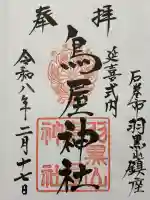 奉拝
延喜式内
石巻市羽黒山鎮座
鳥屋神社
令和八年二月十七日
羽黒山
神社